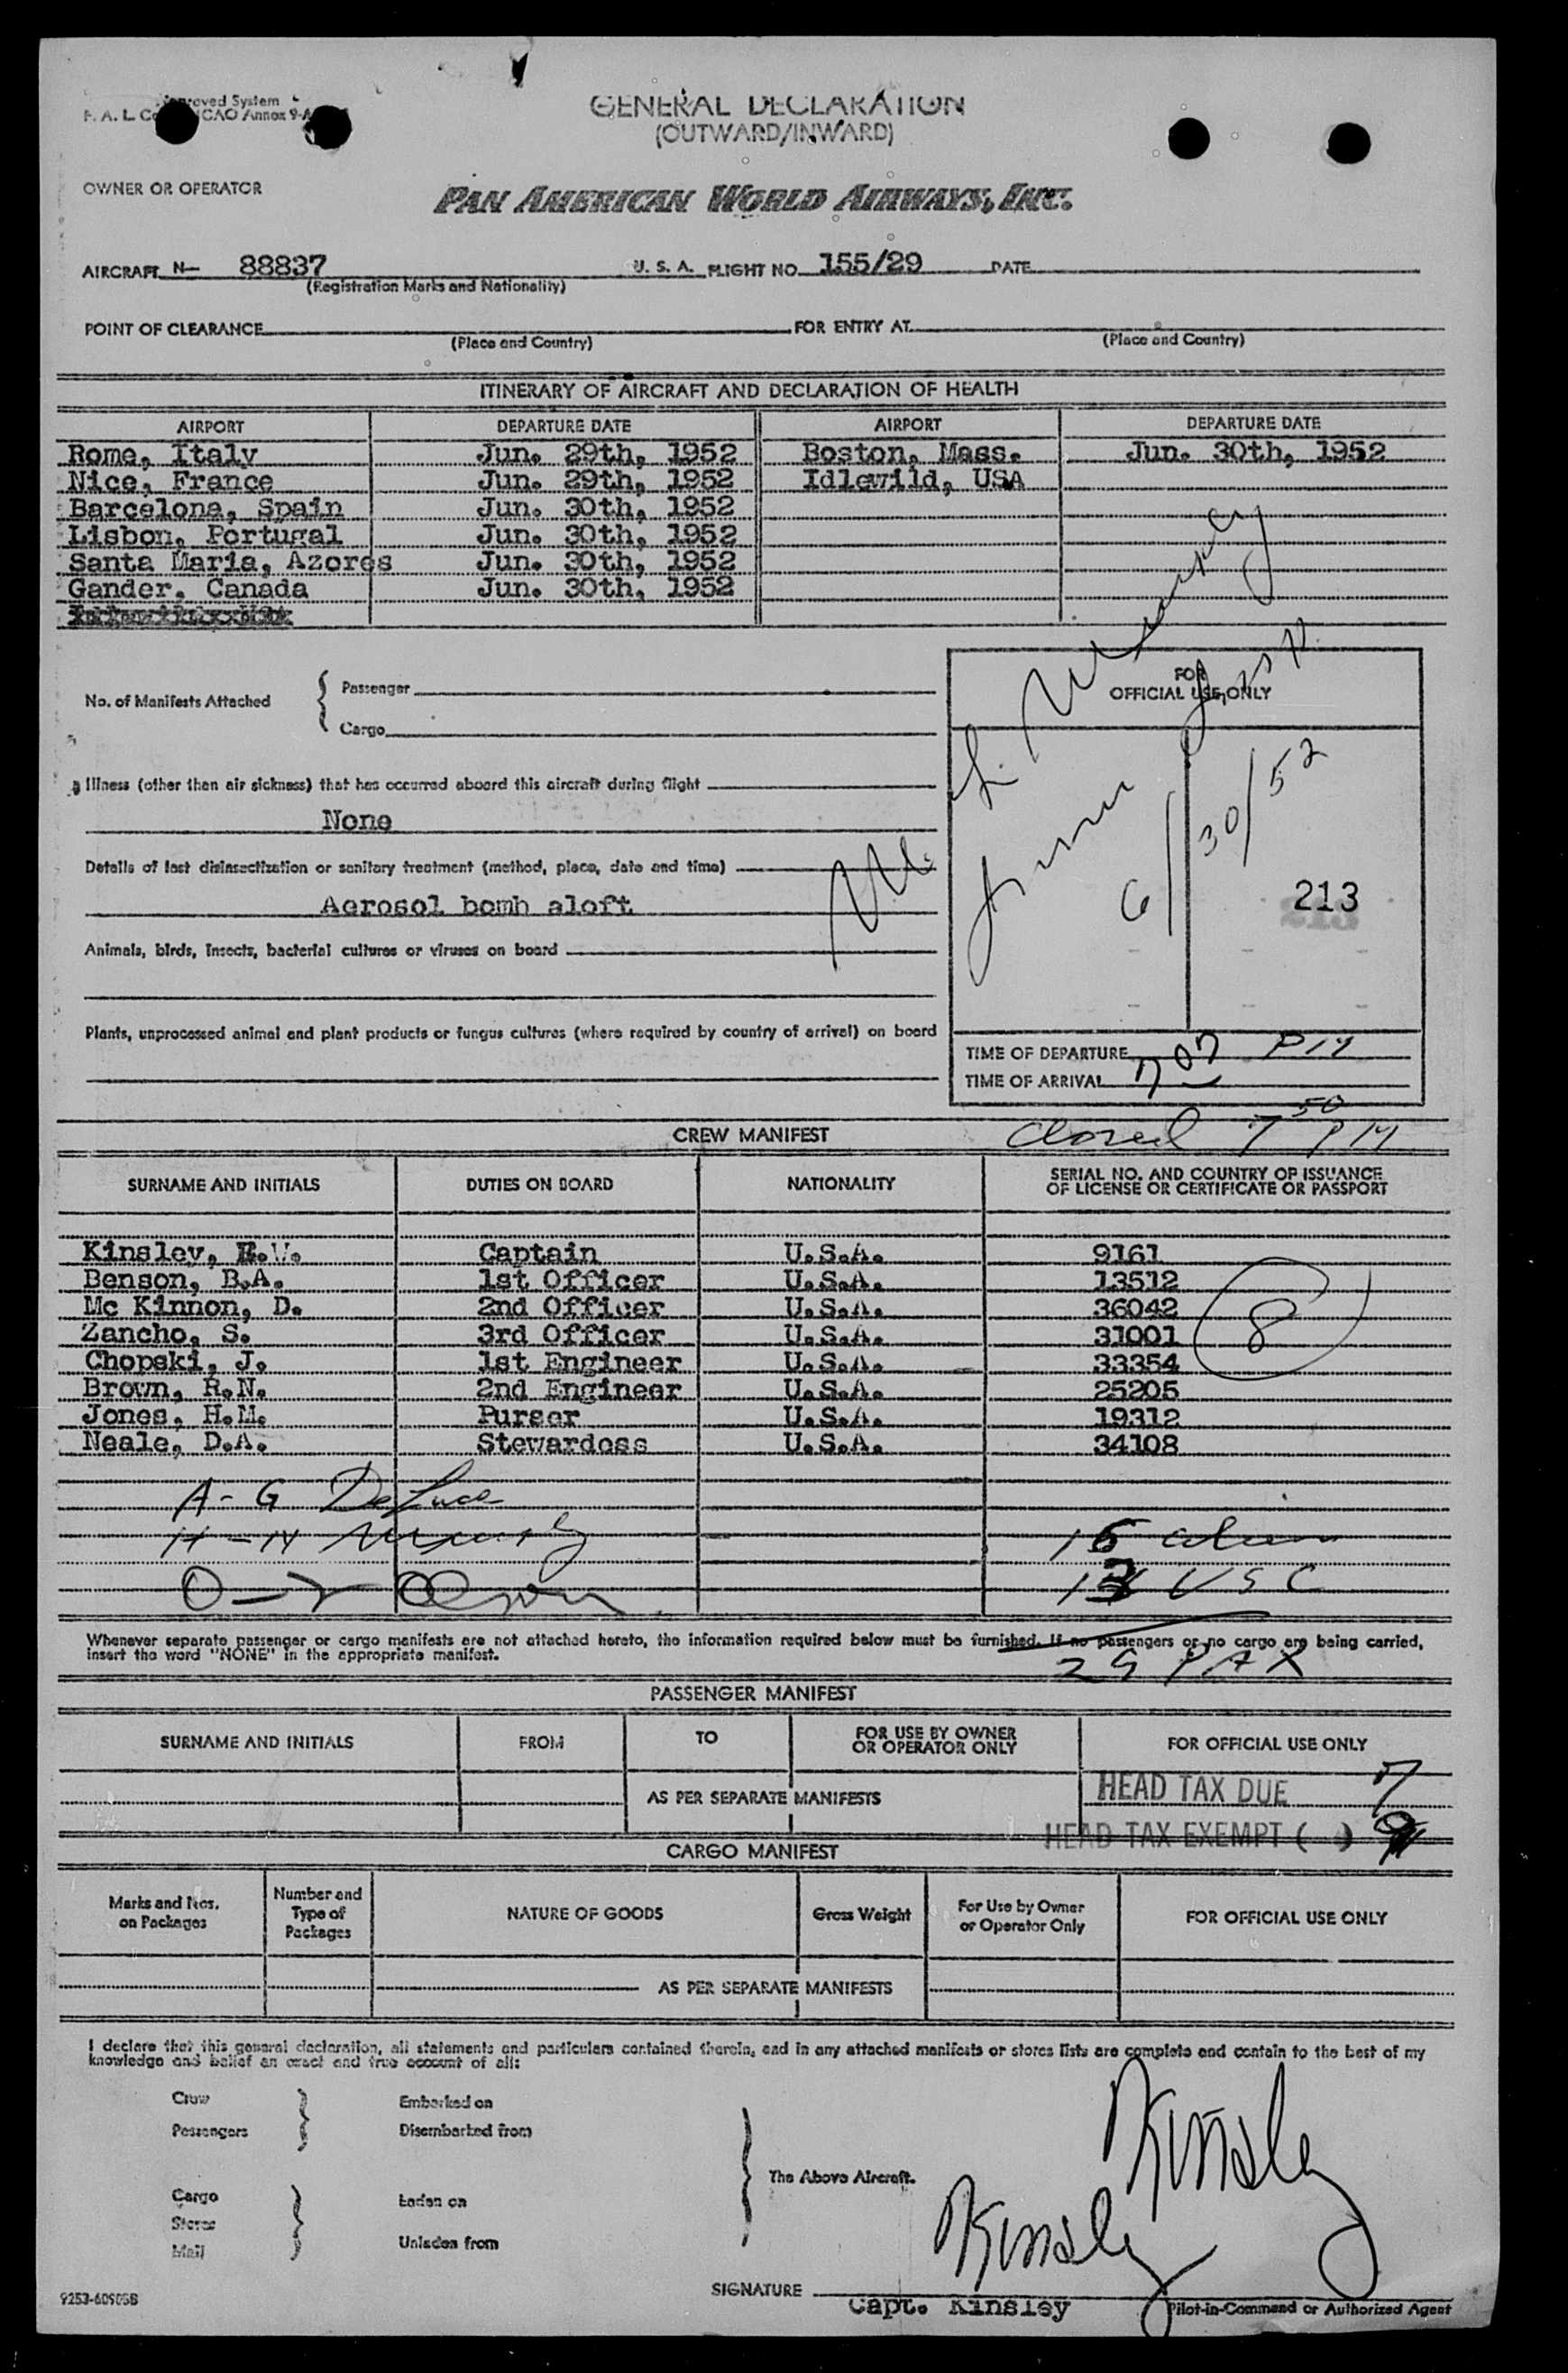 GENERAL DECLARATION
(OUTWARD/INWARD)
OWNER OR OPERATOR
PAN AMERICAN WORLD AIRWAYS, INC.
AIRCRAFT N- 88837 U. S. A. FLIGHT NO. 155/29 DATE
(Registration Marks and Nationality)
POINT OF CLEARANCE FOR ENTRY AT
(Place and Country) (Place and Country)
ITINERARY OF AIRCRAFT AND DECLARATION OF HEALTH
AIRPORT DEPARTURE DATE AIRPORT DEPARTURE DATE
Rome, Italy Jun. 29th, 1952 Boston, Mass. Jun. 30th, 1952
Nice, France Jun. 29th, 1952 Idlewild, USA
Barcelona, Spain Jun. 30th, 1952
Lisbon, Portugal Jun. 30th, 1952
Santa Maria, Azores Jun. 30th, 1952
Gander, Canada Jun. 30th, 1952
No. of Manifests Attached
Passenger
Cargo
FOR
OFFICIAL USE ONLY
6/30/52
213
Illness (other than air sickness) that has occurred aboard this aircraft during flight
None
Details of last disinsectization or sanitary treatment (method, place, date and time)
Aerosol bomb aloft
Animals, birds, insects, bacterial cultures or viruses on board
Plants, unprocessed animal and plant products or fungus cultures (where required by country of arrival) on board
TIME OF DEPARTURE
TIME OF ARRIVAL 7 07 PM
Closed 7 50 PM
CREW MANIFEST
SURNAME AND INITIALS DUTIES ON BOARD NATIONALITY SERIAL NO. AND COUNTRY OF ISSUANCE
OF LICENSE OR CERTIFICATE OR PASSPORT
Kinsley, E.V. Captain U.S.A. 9161
Benson, B.A. 1st Officer U.S.A. 13512
Mc Kinnon, D. 2nd Officer U.S.A. 36042
Zancho, S. 3rd Officer U.S.A. 31001
8
Chopski, J. 1st Engineer U.S.A. 33354
Brown, R.N. 2nd Engineer U.S.A. 25205
Jones, H.M. Purser U.S.A. 19312
Neale, D.A. Stewardess U.S.A. 34108
A - G DeLuca
H - N
O - Z
USC
Whenever separate passenger or cargo manifests are not attached hereto, the information required below must be furnished. If no passengers or no cargo are being carried,
insert the word "NONE" in the appropriate manifest.
29 PAX
PASSENGER MANIFEST
SURNAME AND INITIALS FROM TO FOR USE BY OWNER
OR OPERATOR ONLY FOR OFFICIAL USE ONLY
HEAD TAX DUE 7
AS PER SEPARATE MANIFESTS
HEAD TAX EXEMPT ( )
CARGO MANIFEST
Marks and Nos.
on Packages Number and
Type of
Packages NATURE OF GOODS Gross Weight For Use by Owner
or Operator Only FOR OFFICIAL USE ONLY
AS PER SEPARATE MANIFESTS
I declare that this general declaration, all statements and particulars contained therein, and in any attached manifests or stores lists are complete and contain to the best of my
knowledge and belief an exact and true account of all:
Crew Embarked on
Passengers Disembarked from
The Above Aircraft.
Cargo Laden on
Stores
Mail Unladen from
Kinsley
Kinsley
SIGNATURE
Capt. Kinsley Pilot-in-Command or Authorized Agent